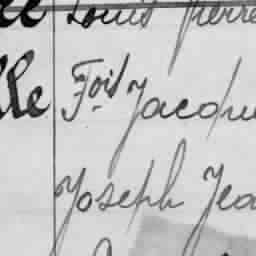 Louis Pierre
Fois Jacque
Joseph Jea